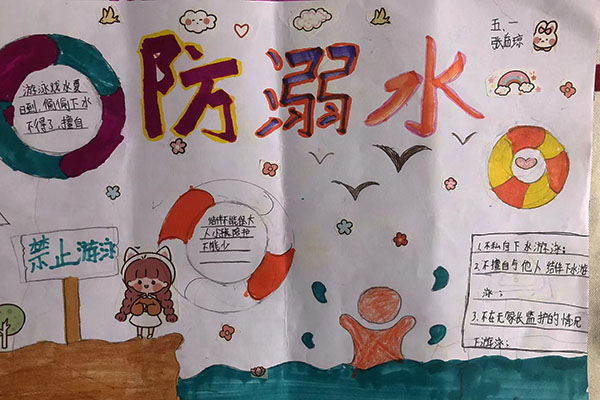 防溺水
五.一
游泳戏水夏
日到,偷偷下水
不得了,擅自
结伴不能保大
人小孩陪护
不能少
禁止游泳
1.不私自下水游泳;
2.不擅自与他人结伴下水游
泳;
3.不在无家长监护的情况
下游泳;